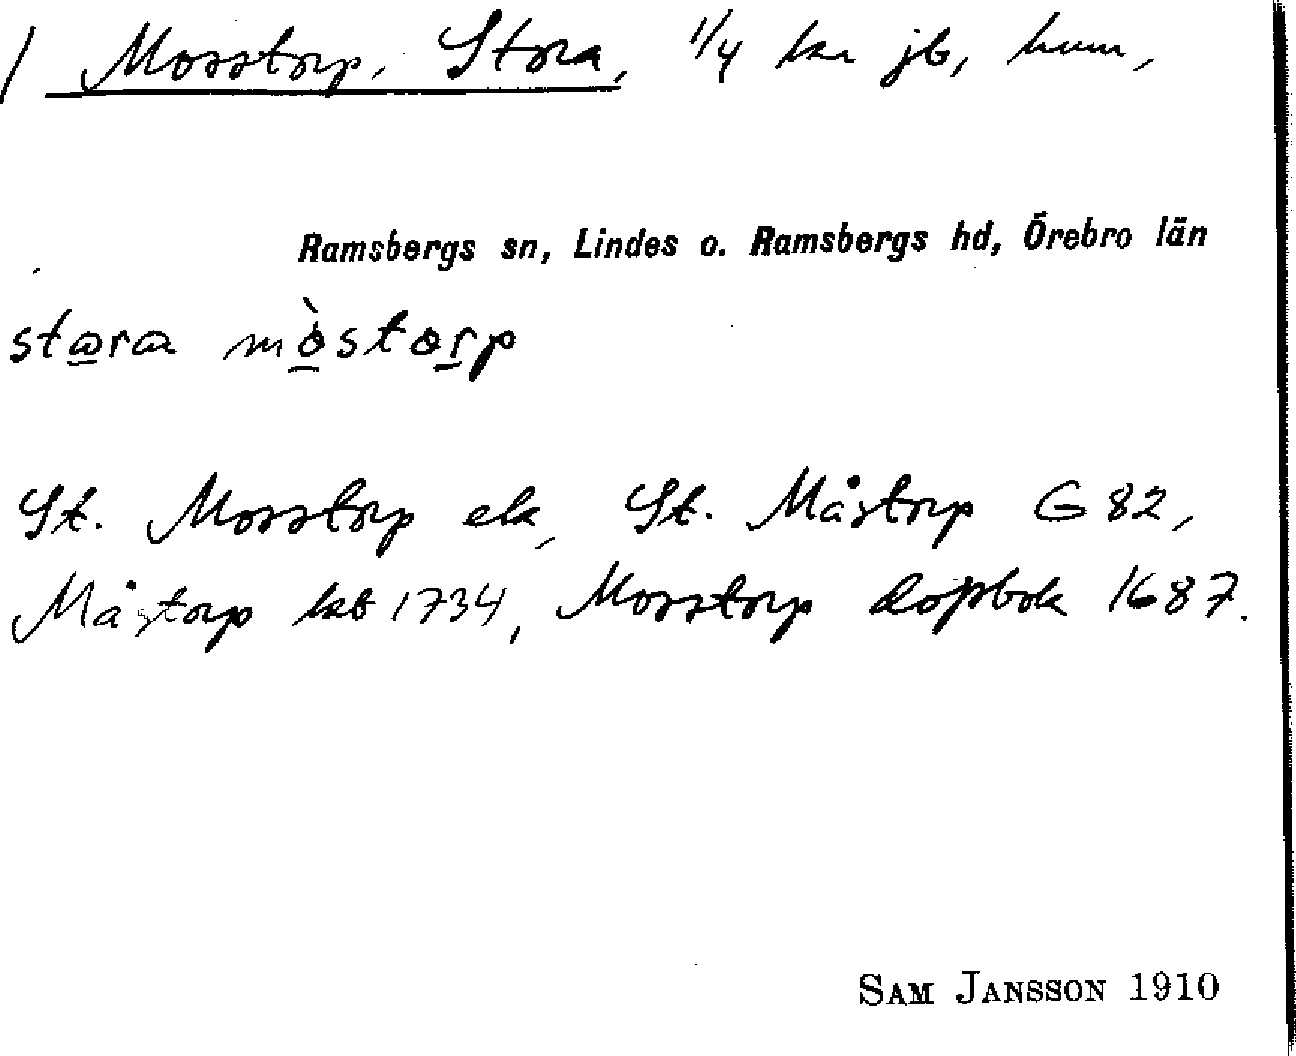 / Mosstorp, Stora, 1/4 kr jb, hum,
Ramsbergs sn, Lindes o. Ramsbergs hd, Örebro län
stɷra mòstorp
St. Mosstorp ek, St. Måstorp G 82,
Måstorp kb 1734, Mosstorp dopbok 1687.
SAM JANSSON 1910